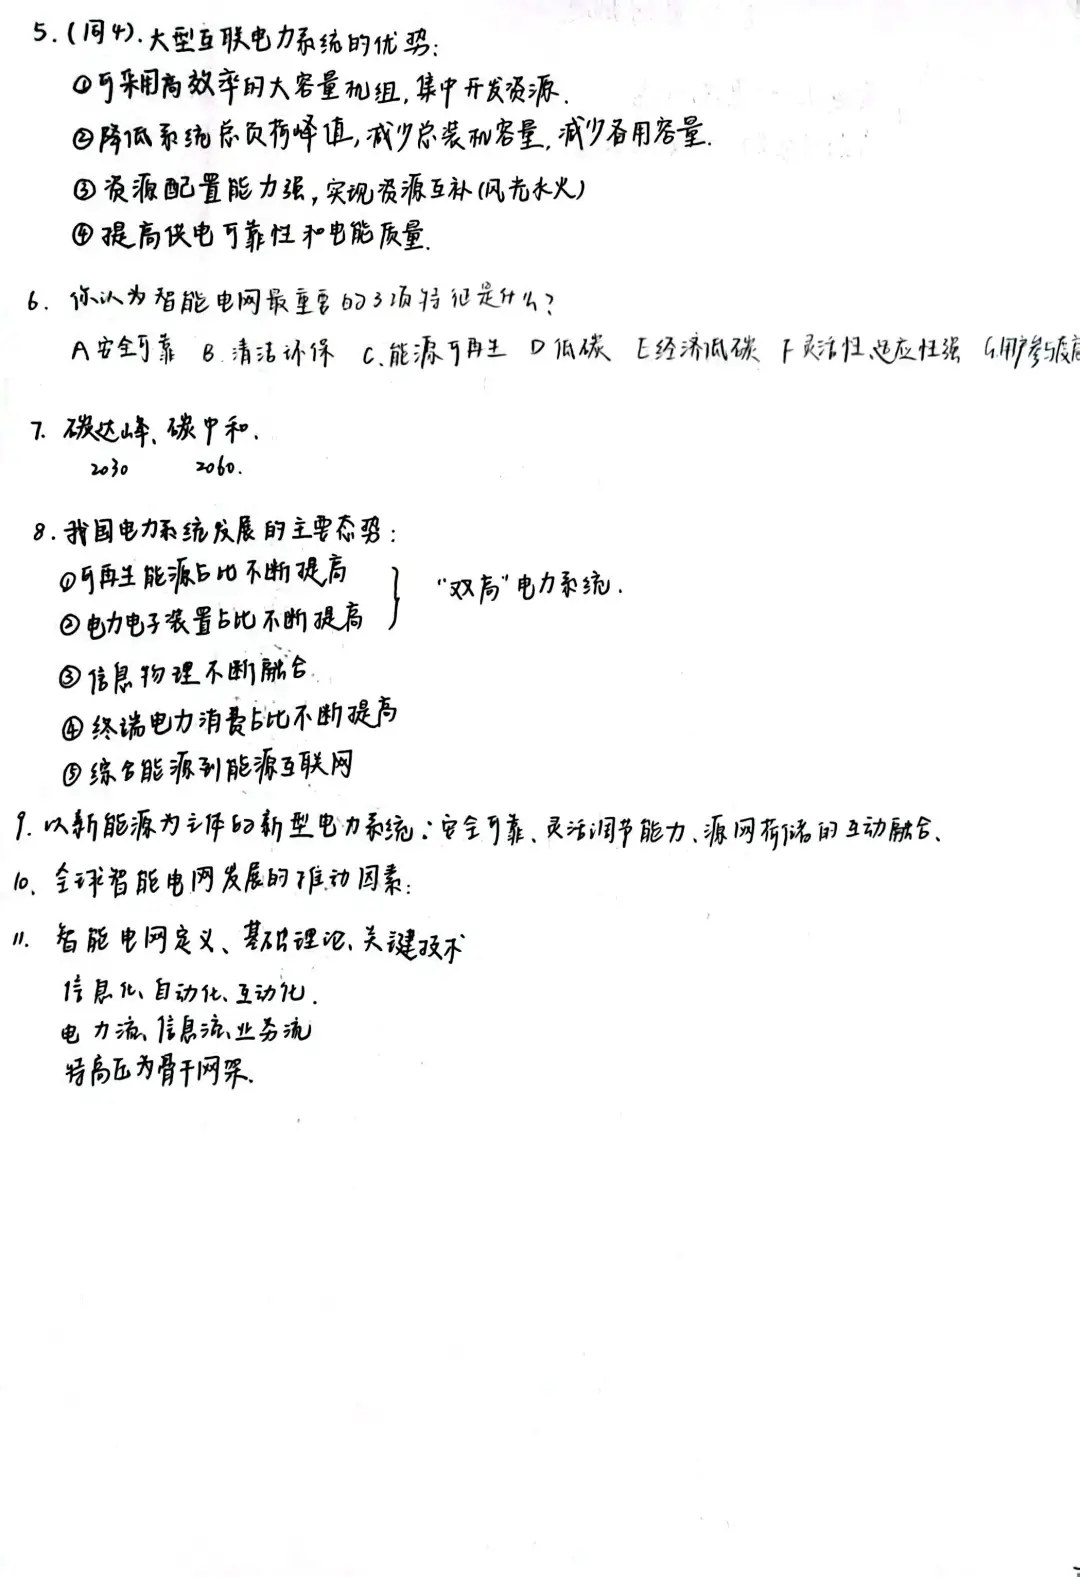 5.(同4).大型互联电力系统的优势:
①可采用高效率的大容量机组,集中开发资源.
②降低系统总负荷峰值,减少总装机容量,减少备用容量.
③资源配置能力强,实现资源互补(风光水火)
④提高供电可靠性和电能质量.
6. 你认为智能电网最重要的3项特征是什么?
A安全可靠 B.清洁环保 C.能源可再生 D低碳 E经济低碳 F灵活性.适应性强 G.用户参与度高
7. 碳达峰、碳中和.
2030 2060.
8.我国电力系统发展的主要态势:
①可再生能源占比不断提高
“双高”电力系统.
②电力电子装置占比不断提高
③信息物理不断融合.
④终端电力消费占比不断提高
⑤综合能源到能源互联网
9.以新能源为主体的新型电力系统:安全可靠、灵活调节能力、源网荷储的互动融合、
10、全球智能电网发展的推动因素:
11. 智能电网定义、基础理论、关键技术
信息化、自动化、互动化.
电力流、信息流、业务流
特高压为骨干网架.